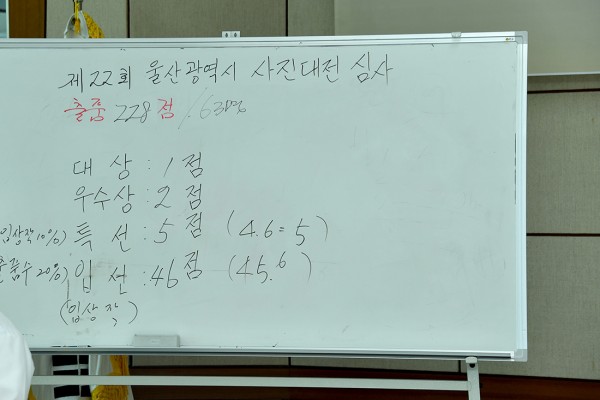 제22회 울산광역시 사진대전 심사
출품 228점
대 상 : 1점
우수상 : 2점
입상작 10%) 특 선 : 5점 (4.6=5)
출품수 20%) 입 선 : 46점 (45.6)
(입상작)